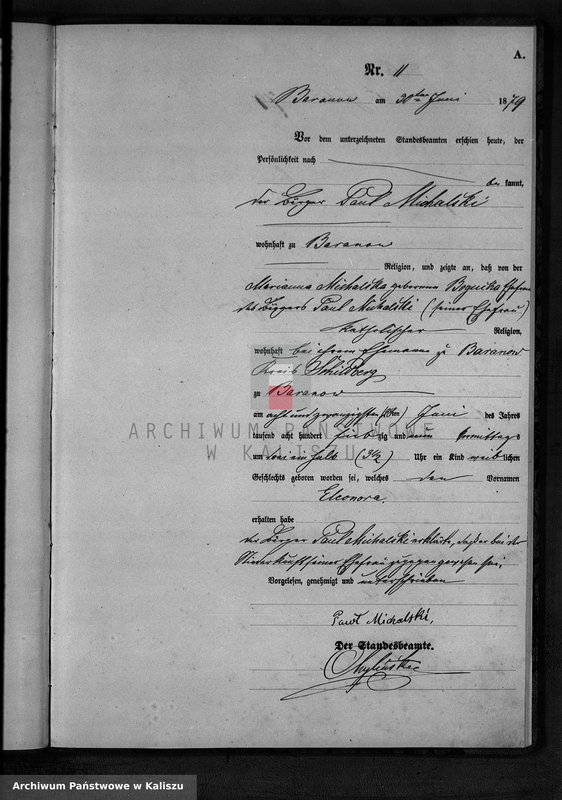 A.
Nr. 11
Baranow am 30ten Juni 1879
Vor dem unterzeichneten Standesbeamten erschien heute, der
Persönlichkeit nach
be kannt,
der Bürger Paul Michalski
wohnhaft zu Baranow
Religion, und zeigte an, daß von der
Marianna Michalska geborenen Ehefrau
des Bürgers Paul Michalski (seiner Ehefrau)
katholischer Religion,
wohnhaft bei ihrem Ehemanne zu Baranow
Kreis Schildberg
zu Baranow
am acht und zwanzigsten (28ten) Juni des Jahres
tausend acht hundert sieb zig und neun Vormittags
um drei ein halb (3½) Uhr ein Kind weiblichen
Geschlechts geboren worden sei, welches den Vornamen
Eleonora
erhalten habe
der Bürger Paul Michalski erklärte, daß er bei der
Niederkunft seiner Ehefrau zugegen gewesen sei.
Vorgelesen, genehmigt und unterschrieben
Paul Michalski,
Der Standesbeamte.
ARCHIWUM PAŃSTWOWE
W KALISZU
Archiwum Państwowe w Kaliszu